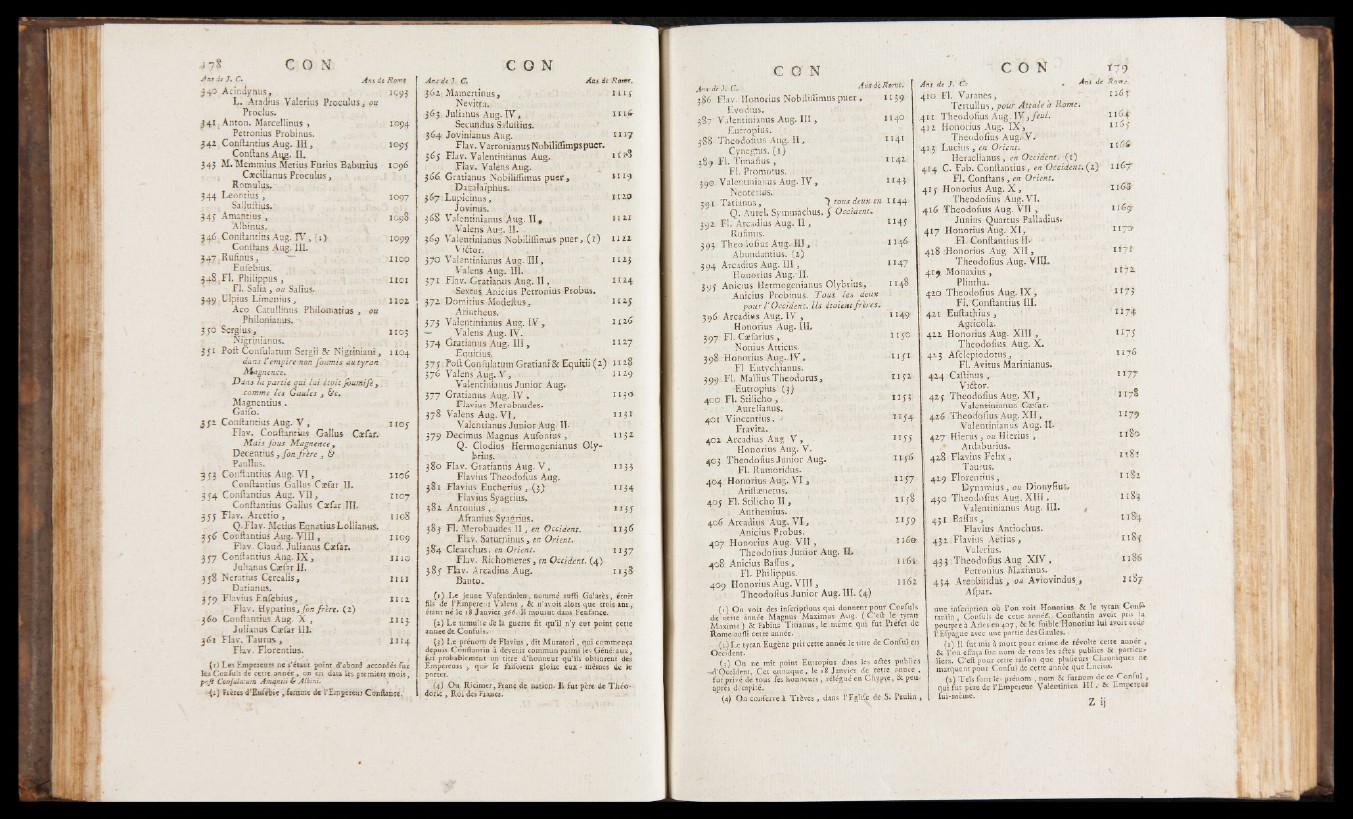 178 CON
Ans de J. C. Ans de Rome
340 Acindynus, 1093
L. Aradius Valerius Proculus, ou
Proclus.
341 Anton. Marcellinus, 1094
Petronius Probinus.
342 Conſtantius Aug. III, 1095
Conſtans Aug. II.
343 M. Memmius Metius Furius Baburius 1096
Cæcilianus Proculus,
Romulus.
344 Leontius, 1097
Salluſtius.
345 Amantius, 1098
Albinus.
346 Conſtantius Aug. IV, (1) 1099
Conſtans Aug. III.
347 Rufinus, 1100
Euſebius.
348 Fl. Philippus, 1101
Fl. Salia, ou Salius.
349 Ulpius Limenius, 1102
Aco Catullinus Philomatius, ou
Philonianus.
350 Sergius, 1103
Nigrinianus.
351 Poſt Conſulatum Sergii & Nigriniani, 1104
dans l'empire non ſoumis au tyran
Magnence.
Dans la partie qui lui étoit ſoumiſe,
comme les Gaules, &c.
Magnentius.
Gaiſo.
352 Conſtantius Aug. V, 1105
Flav. Conſtantius Gallus Cæſar.
Mais ſous Magnence,
Decentius, ſon frère, &
Paullus.
353 Conſtantius Aug. VI, 1106
Conſtantius Gallus Cæſar II.
354 Conſtantius Aug. VII, 1107
Conſtantius Gallus Cæſar III.
355 Flav. Arcetio, 1108
Q. Flav. Metius Egnatius Lollianus.
356 Conſtantius Aug. VIII, 1109
Flav. Claud. Julianus Cæſar.
357 Conſtantius Aug. IX, 1110
Julianus Cæſar II.
358 Neratius Cerealis, 1111
Datianus.
359 Flavius Euſebius, 1112
Flav. Hypatius, ſon frère. (2)
360 Conſtantius Aug. X, 1113
Julianus Cæſar III.
361 Flav. Taurus, 1114
Flav. Florentius.
(1) Les Empereurs ne s'étant point d'abord accordés ſur
les Conſuls de cette année, on en data les premiers mois,
poſt Conſulatum Amantii & Albini.
(2) Frères d'Euſébie, femme de l'Empereur Conſtance.
CON
Ans de J. C. Ans de Rome.
362 Mamertinus, 1115
Nevitta.
363 Julianus Aug. IV, 1116
Secundus Saluſtius.
364 Jovinianus Aug. 1117
Flav. Varronianus Nobiliſſimus puer.
365 Flav. Valentinianus Aug. 1118
Flav. Valens Aug.
366 Gratianus Nobiliſſimus puer, 1119
Dagalaiphus.
367 Lupicinus, 1120
Jovinus.
368 Valentinianus Aug. II, 1121
Valens Aug. II.
369 Valentinianus Nobiliſſimus puer, (1) 1122
Victor.
370 Valentinianus Aug. III, 1123
Valens Aug. III.
371 Flav. Gratianus Aug. II, 1124
Sextus Anicius Petronius Probus.
372 Domitius Modeſtus, 1125
Arintheus.
373 Valentinianus Aug. IV, 1126
Valens Aug. IV.
374 Gratianus Aug. III, 1127
Equitius.
375 Poſt Conſulatum Gratiani & Equitii (2) 1128
376 Valens Aug. V, 1129
Valentinianus Junior Aug.
377 Gratianus Aug. IV, 1130
Flavius Merobaudes.
378 Valens Aug. VI, 1131
Valentianus Junior Aug. II.
379 Decimus Magnus Auſonius, 1132
Q. Clodius Hermogenianus Oly-
brius.
380 Flav. Gratianus Aug. V, 1133
Flavius Theodoſius Aug.
381 Flavius Eucherius, (3) 1134
Flavius Syagrius.
382 Antonius, 1135
Afranius Syagrius.
383 Fl. Merobaudes II, en Occident. 1136
Flav. Saturninus, en Orient.
384 Clearchus, en Orient. 1137
Flav. Richomeres, en Occident. (4)
385 Flav. Arcadius Aug. 1138
Bauto.
(1) Le jeune Valentinien, nommé auſſi Galatès, étoit
fils de l'Empereur Valens, & n'avoit alors que trois ans,
étant né le 18 Janvier 366. Il mourut dans l'enfance.
(2) Le tumulte de la guerre fit qu'il n'y eut point cette
année de Conſuls.
(3) Le prénom de Flavius, dit Muratori, qui commença
depuis Conſtantin à devenir commun parmi les Généraux,
fut probablement un titre d'honneur qu'ils obtinrent des
Empereurs, que ſe faiſoient gloire eux-mêmes de le
porter.
(4) Ou Ricimer, Franc de nation. Il fut père de Théo-
doric, Roi des Francs.
CON
Ans de J. C. Ans de Rome.
386 Flav. Honorius Nobiliſſimus puer, 1139
Evodius.
387 Valentinianus Aug. III, 1140
Eutropius.
388 Theodoſius Aug. II, 1141
Cynegius. (1)
389 Fl. Timaſius, 1142
Fl. Promotus.
390 Valentinianus Aug. IV, 1143
Neoterius.
391 Tatianus, } tous deux en 1144
Q. Aurel. Symmachus. } Occident.
392 Fl. Arcadius Aug. II, 1145
Rufinus.
393 Theodoſius Aug. III, 1146
Abundantius. (2)
394 Arcadius Aug. III, 1147
Honorius Aug. II.
395 Anicius Hermogenianus Olybrius, 1148
Anicius Probinus. Tous les deux
pour l'Occident. Ils étoient frères.
396 Arcadius Aug. IV, 1149
Honorius Aug. III.
397 Fl. Cæſarius, 1150
Nonius Atticus.
398 Honorius Aug. IV, 1151
Fl. Eutychianus.
399 Fl. Mallius Theodorus, 1152
Eutropius (3)
400 Fl. Stilicho, 1153
Aurelianus.
401 Vincentius, 1154
Fravita.
402 Arcadius Aug. V, 1155
Honorius Aug. V.
403 Theodoſius Junior Aug. 1156
Fl. Rumoridus.
404 Honorius Aug. VI, 1157
Ariſtænetus.
405 Fl. Stilicho II, 1158
Anthemius.
406 Arcadius Aug. VI, 1159
Anicius Probus.
407 Honorius Aug. VII, 1160
Theodoſius Junior Aug. II.
408 Anicius Baſſus, 1161
Fl. Philippus.
409 Honorius Aug. VIII, 1162
Theodoſius Junior Aug. III. (4)
(1) On voit des inſcriptions qui donnent pour Conſuls
de cette année Magnus Maximus Aug. (C'eſt le tyran
Maxime) & Fabius Titianus, le même qui fut Préfet de
Rome auſſi cette année.
(2) Le tyran Eugène prit cette année le titre de Conſul en
Occident.
(3) On ne mit point Eutropius dans les actes publics
d'Occident. Cet eunuque, le 18 Janvier de cette année,
fut privé de tous ſes honneurs, relégué en Chypre, & peu-
après décapité.
(4) On conſerve à Trèves, dans l'Egliſe de S. Paulin,
CON 179
Ans de J. C. Ans de Rome.
410 Fl. Varanes, 1163
Tertullus, pour Attale à Rome.
411 Theodoſius Aug. IV, ſeul. 1164
412 Honorius Aug. IX, 1165
Theodoſius Aug. V.
413 Lucius, en Orient. 1166
Heraclianus, en Occident. (1)
414 C. Fab. Conſtantius, en Occident. (2) 1167
Fl. Conſtans, en Orient.
415 Honorius Aug. X, 1168
Theodoſius Aug. VI.
416 Theodoſius Aug. VII, 1169
Junius Quartus Palladius.
417 Honorius Aug. XI, 1170
Fl. Conſtantius II.
418 Honorius Aug. XII, 1171
Theodoſius Aug. VIII.
419 Monaxius, 1172
Plintha.
420 Theodoſius Aug. IX, 1173
Fl. Conſtantius III.
421 Euſtathius, 1174
Agricola.
422 Honorius Aug. XIII, 1175
Theodoſius Aug. X.
423 Aſclepiodotus, 1176
Fl. Avitus Marinianus.
424 Caſtinus, 1177
Victor.
425 Theodoſius Aug. XI, 1178
Valentinianus Cæſar.
426 Theodoſius Aug. XII, 1179
Valentinianus Aug. II.
427 Hierus, ou Hierius, 1180
Ardaburius.
428 Flavius Felix, 1181
Taurus.
429 Florentius, 1182
Dynamius, ou Dionyſius.
430 Theodoſius Aug. XIII, 1183
Valentinianus Aug. III.
431 Baſſus, 1184
Flavius Antiochus.
432 Flavius Aetius, 1185
Valerius.
433 Theodoſius Aug. XIV, 1186
Petronius Maximus.
434 Areobindus, ou Ariovindus, 1187
Aſpar.
une inſcription où l'on voit Honorius & le tyran Conſ-
tantin, Conſuls de cette année. Conſtantin avoit pris la
pourpre à Arles en 407, & le foible Honorius lui avoit cédé
l'Eſpagne avec une partie des Gaules.
(1) Il fut mis à mort pour crime de révolte cette année,
& l'on effaça ſon nom de tous les actes publics & particu-
liers. C'eſt pour cette raiſon que pluſieurs Chroniques ne
marquent pour Conſul de cette année que Lucius.
(2) Tels ſont les prénom, nom & ſurnom de ce Conſul,
qui fut père de l'Empereur Valentinien III, & Empereur
lui-même.
Z ij